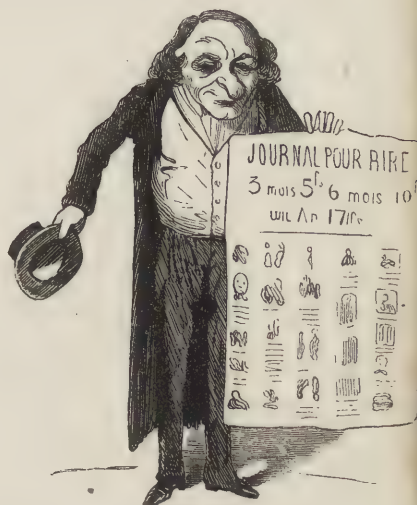 JOURNAL POUR RIRE
3 mois 5fs 6 mois 10f
un An 17fs